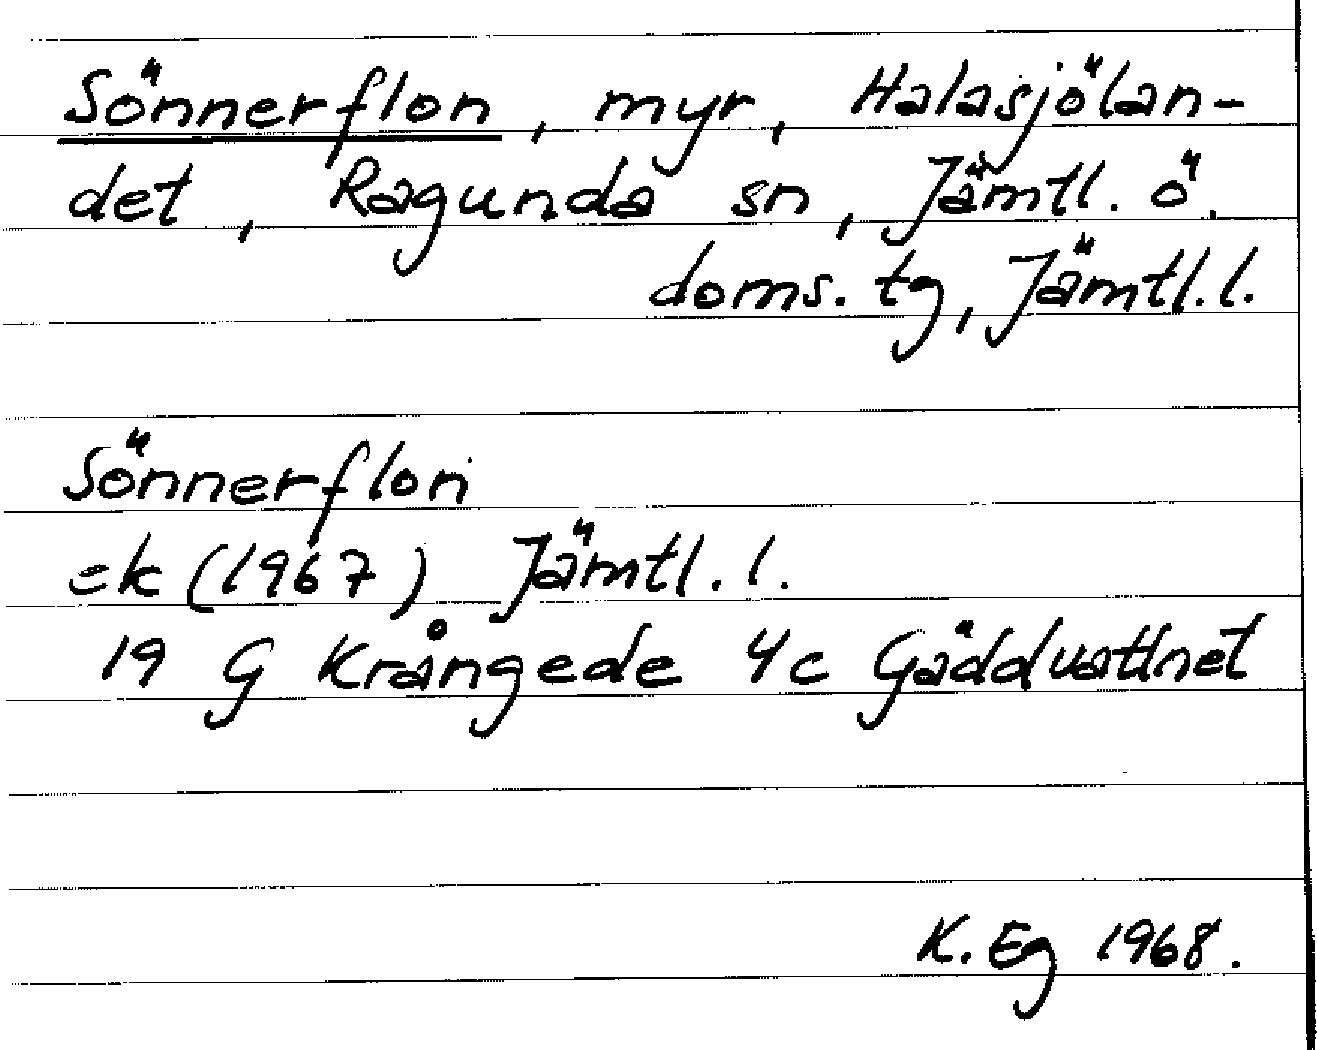 Sönnerflon, myr, Halasjölan-
det, Ragunda sn, Jämtl. ö.
doms. tg, Jämtl. l.
Sönnerflon
ek (1967) Jämtl. l.
19 G Krångede 4c Gäddvattnet
K. Eg 1968.